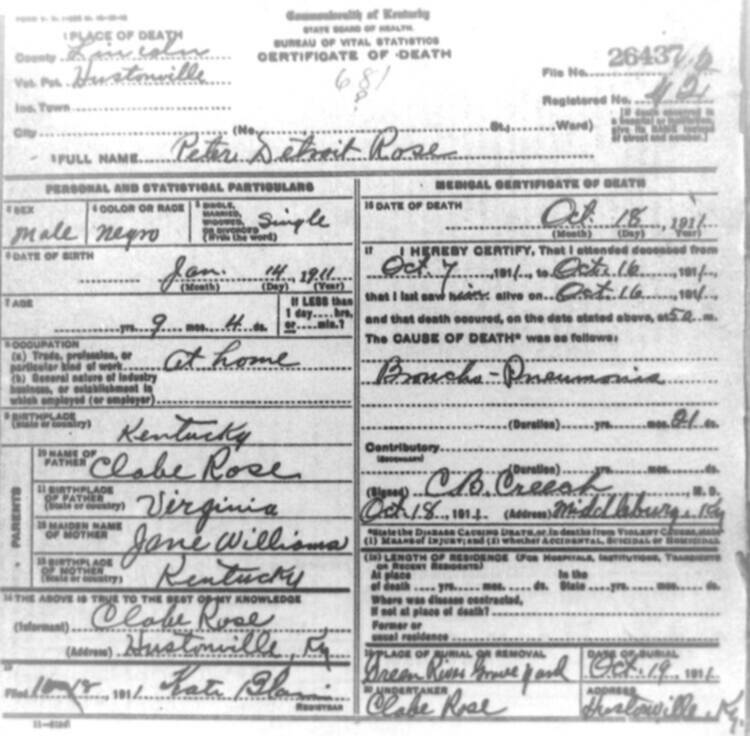 Commonwealth of Kentucky
STATE BOARD OF HEALTH
BUREAU OF VITAL STATISTICS
CERTIFICATE OF DEATH
1 PLACE OF DEATH
County Lincoln
Vot. Pct. Hustonville
Inc. Town
City (No. St.; Ward)
681
File No. 26437
Registered No. 42
[If death occurred in a hospital or institution, give its NAME instead of street and number.]
2 FULL NAME Peter Detroit Rose
PERSONAL AND STATISTICAL PARTICULARS
3 SEX male
4 COLOR OR RACE negro
5 SINGLE, MARRIED, WIDOWED OR DIVORCED (Write the word) Single
6 DATE OF BIRTH
Jan. 14, 1911
(Month) (Day) (Year)
7 AGE
yrs. 9 mos. 4 ds.
If LESS than 1 day... hrs. or... min.?
8 OCCUPATION
(a) Trade, profession, or particular kind of work at home
(b) General nature of industry
business, or establishment in
which employed (or employer)
9 BIRTHPLACE
(State or country) Kentucky
PARENTS
10 NAME OF FATHER Clabe Rose
11 BIRTHPLACE OF FATHER (State or country) Virginia
12 MAIDEN NAME OF MOTHER Jane Williams
13 BIRTHPLACE OF MOTHER (State or country) Kentucky
14 THE ABOVE IS TRUE TO THE BEST OF MY KNOWLEDGE
(Informant) Clabe Rose
(Address) Hustonville, Ky
15
Filed 1911 Kate
REGISTRAR
MEDICAL CERTIFICATE OF DEATH
16 DATE OF DEATH
Oct. 18, 1911
(Month) (Day) (Year)
17 I HEREBY CERTIFY, That I attended deceased from
Oct 7, 1911, to Oct. 16, 1911,
that I last saw him alive on Oct. 16, 1911,
and that death occured, on the date stated above, at 5 a m.
The CAUSE OF DEATH* was as follows:
Broncho-Pneumonia
(Duration) yrs. mos. 21 ds.
Contributory
(SECONDARY)
(Duration) yrs. mos. ds.
(Signed) C.B. Creech, M. D.
Oct 18, 1911 (Address) Middleburg, Ky
*State the DISEASE CAUSING DEATH, or, in deaths from VIOLENT CAUSES, state
(1) MEANS OF INJURY; and (2) whether ACCIDENTAL, SUICIDAL OR HOMICIDAL
18 LENGTH OF RESIDENCE (FOR HOSPITALS, INSTITUTIONS, TRANSIENTS
OR RECENT RESIDENTS)
At place of death yrs. mos. ds. In the State yrs. mos. ds.
Where was disease contracted,
If not at place of death?
Former or
usual residence
19 PLACE OF BURIAL OR REMOVAL
Green River Grave yard
DATE OF BURIAL
Oct. 19, 1911
20 UNDERTAKER
Clabe Rose
ADDRESS
Hustonville, Ky.